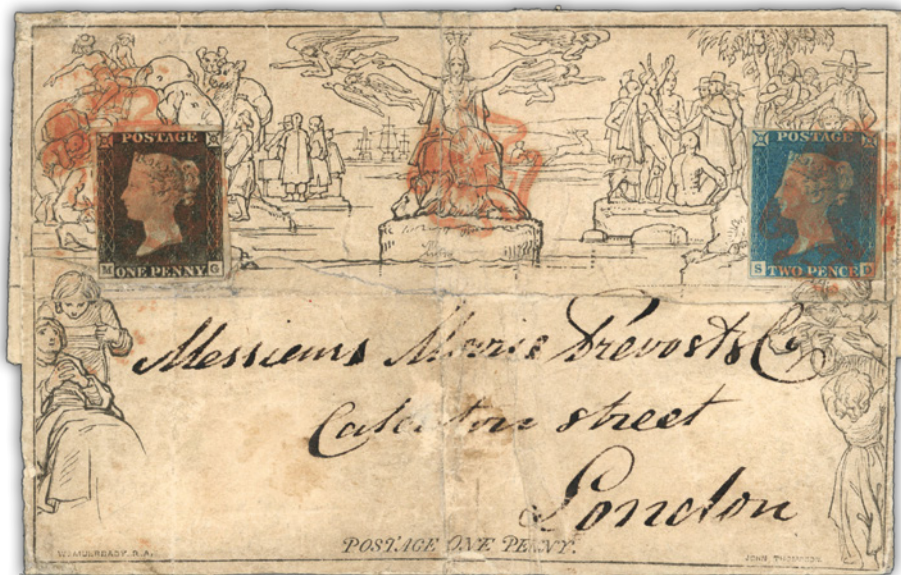 POSTAGE
M ONE PENNY G
POSTAGE
S TWO PENCE D
Messieurs Morris Prevosts Co
street
London
W. MULREADY. R.A.
POSTAGE ONE PENNY.
JOHN, THOMPSON